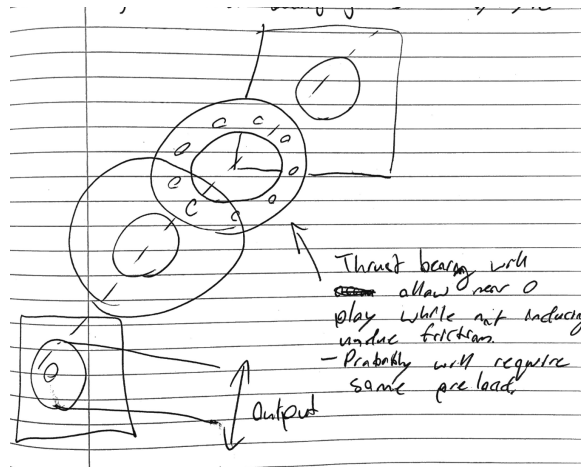 Thrust bearing will
allow near 0
play while not inducing
undue friction.
- Probably will require
some preload.
Output